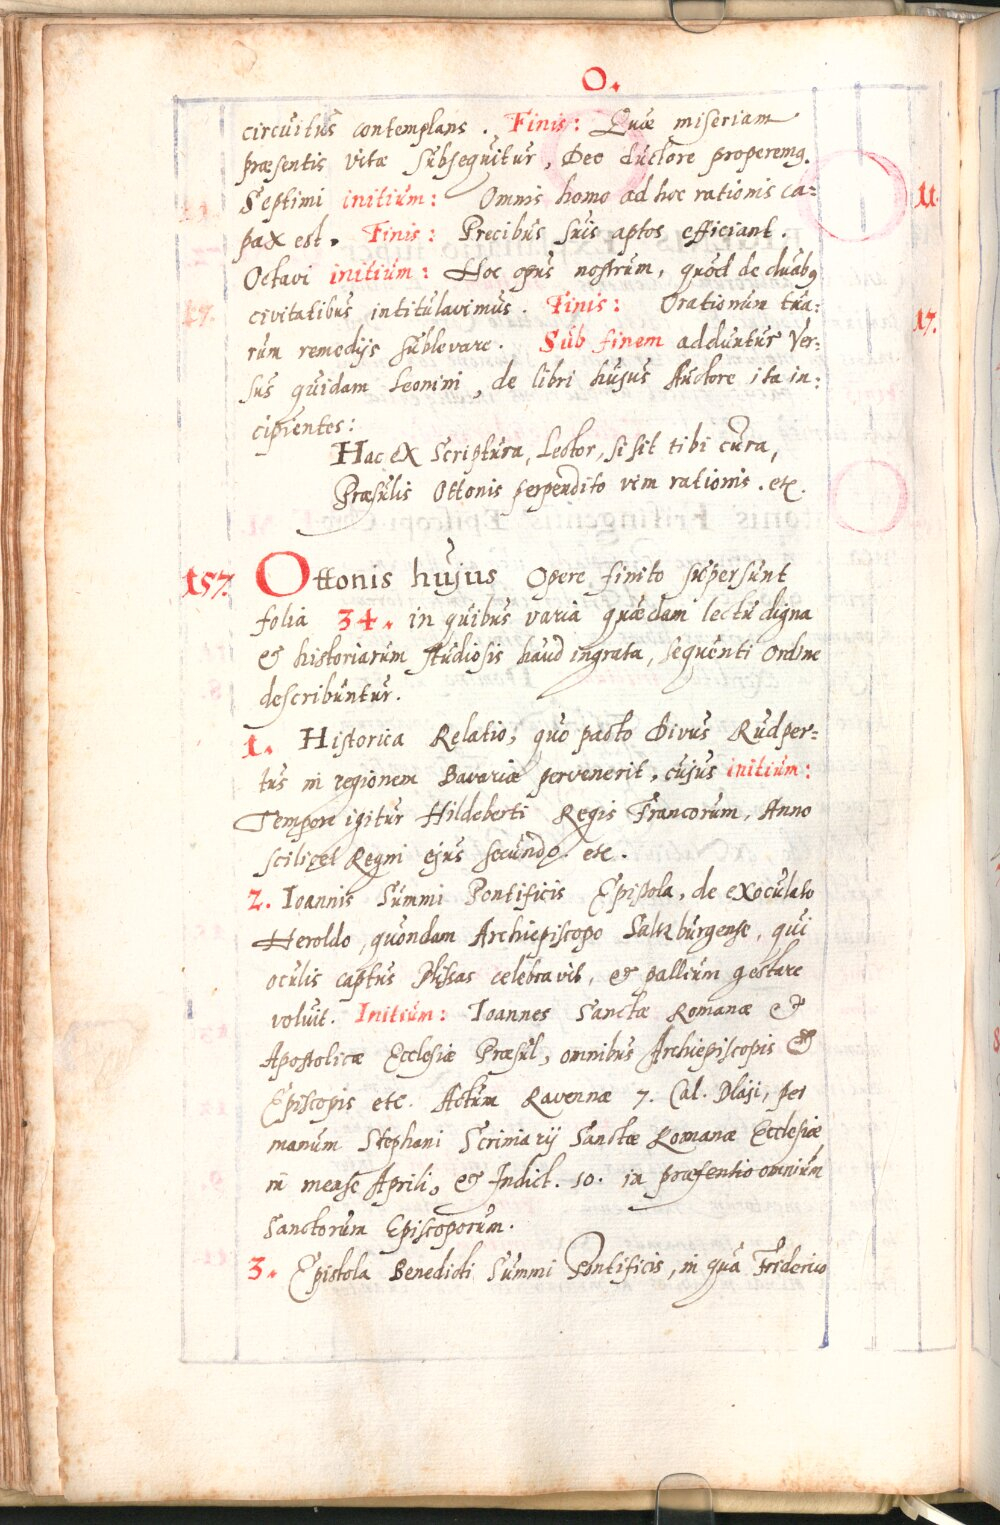 O.
circuitus contemplans. Finis: Quæ miseriam
præsentis vitæ subsequitur, Deo ductore properemꝰ.
Septimi initium: Omnis homo ad hoc rationis ca=
pax est. Finis: Precibus suis aptos efficiant.
11.
Octavi initium: Hoc opus nostrum, quod de duabꝰ
civitatibus intitulavimus. Finis: Orationum tua:
17.
rum remedijs sublevare. Sub finem adduntur Ver:
sus quidam Leonini, de libri hujus Auctore ita in:
cipientes:
Hac ex Scriptura, Lector, si sit tibi cura,
Præsulis Ottonis perpendito vim rationis. etc.
157. Ottonis hujus Opere finito supersunt
folia 34. in quibus varia quædam lectu digna
& historiarum studiosis haud ingrata, sequenti Ordine
describuntur.
1. Historica Relatio, quo pacto Divus Rudper=
tus in regionem Bavariæ pervenerit, cujus initium:
Tempore igitur Hildeberti Regis Francorum, Anno
scilicet Regni ejus secundo. etc.
2. Ioannis Summi Pontificis Epistola, de exoculato
Heroldo, quondam Archiepiscopo Saltzburgense, qui
oculis captus Missas celebravit, & pallium gestare
voluit. Initium: Ioannes Sanctæ Romanæ &
Apostolicæ Ecclesiæ Præsul, omnibus Archiepiscopis &
Episcopis etc. Actum Ravennæ 7. Cal. Maji, per
manum Stephani Scriniarij Sanctæ Romanæ Ecclesiæ
in mense Aprili, & Indict. 10. in præsentia omnium
Sanctorum Episcoporum.
3. Epistola Benedicti Summi Pontificis, in qua Friderico